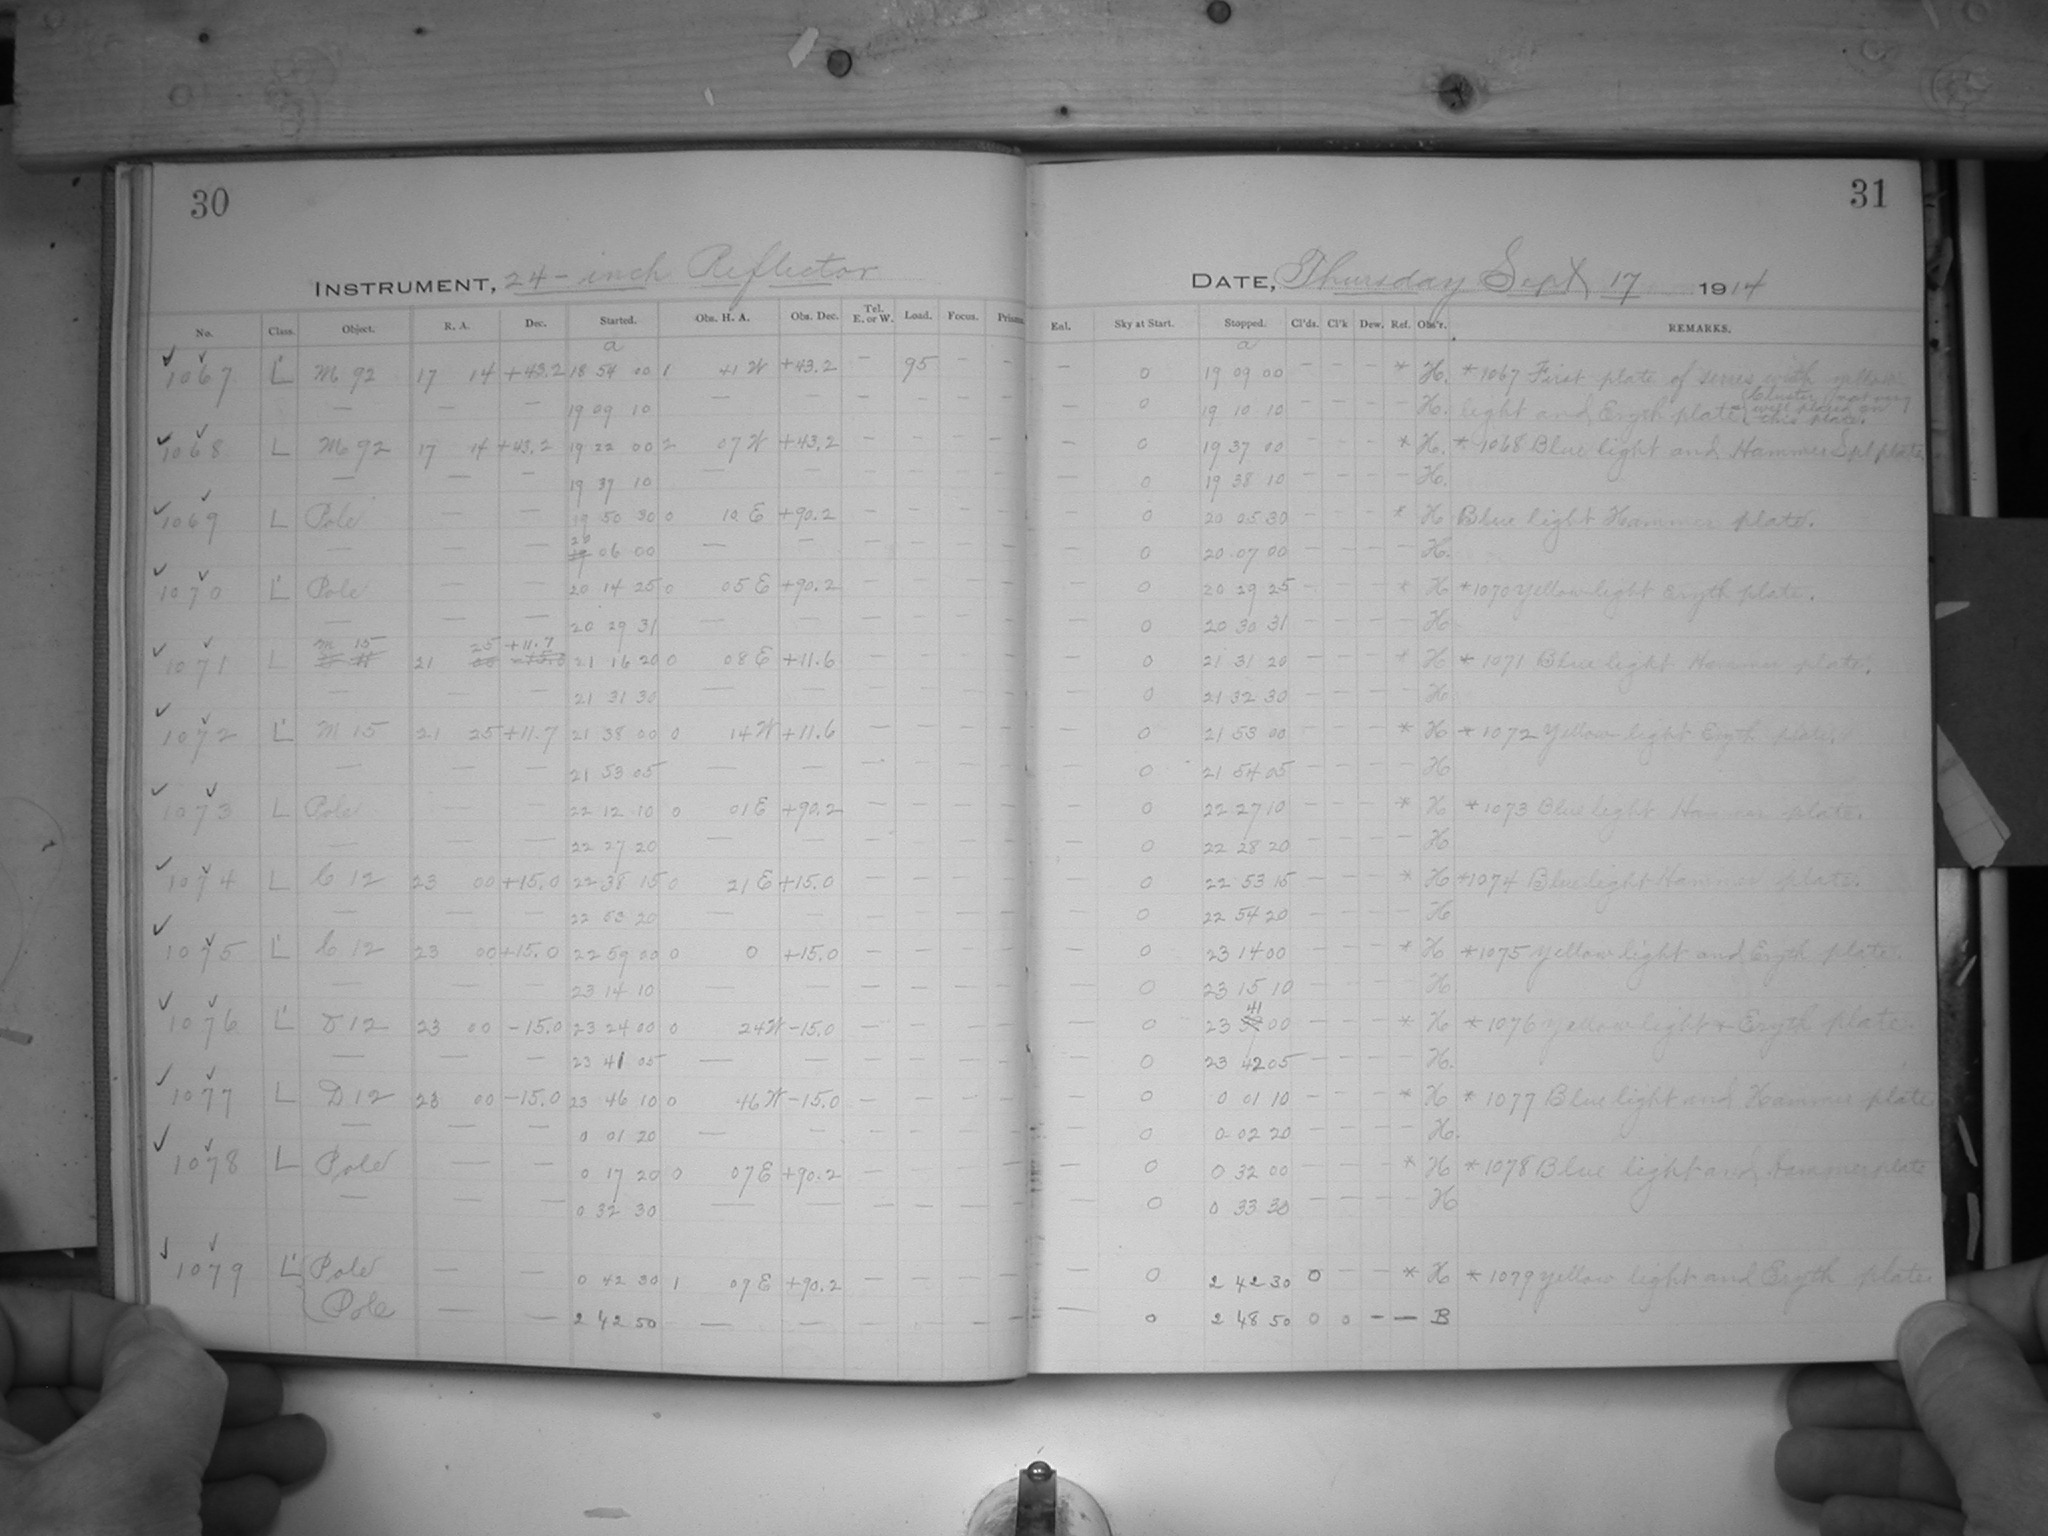 30
INSTRUMENT, 24-inch Reflector
No. Class. Object. R. A. Dec. Started. Obs. H. A. Obs. Dec. Tel. E. or W. Load. Focus. Prisms.
a
1067 L' M 92 17 14 +43.2 18 54 00 1 41 W +43.2 — 95 — —
— — — 19 09 10
1068 L M 92 17 14 +43.2 19 22 00 2 07 W +43.2 — — — —
— — — 19 37 10 — — — — — —
1069 L Pole — — 19 50 30 0 10 E +90.2 — — — —
— — — 20 06 00 — — — — — —
1070 L' Pole — — 20 14 25 0 05 E +90.2 — — — —
— — — 20 29 31 — — — — — —
1071 L M 15 21 25 +11.7 21 16 20 0 08 E +11.6 — — — —
— — — 21 31 30 — — — — — —
1072 L' M 15 21 25 +11.7 21 38 00 0 14 W +11.6 — — — —
— — — 21 53 05 — — — — — —
1073 L Pole — — 22 12 10 0 01 E +90.2 — — — —
— — — 22 27 20 — — — — — —
1074 L C 12 23 00 +15.0 22 38 15 0 21 E +15.0 — — — —
— — — 22 53 20 — — — — — —
1075 L' C 12 23 00 +15.0 22 59 00 0 0 +15.0 — — — —
— — — 23 14 10 — — — — — —
1076 L' D 12 23 00 -15.0 23 24 00 0 24 W -15.0 — — — —
— — — 23 41 05 — — — — — —
1077 L D 12 23 00 -15.0 23 46 10 0 46 W -15.0 — — — —
— — — 0 01 20 — — — — — —
1078 L Pole — — 0 17 20 0 07 E +90.2 — — — —
— — — 0 32 30 — — — — — —
1079 L' Pole — — 0 42 30 1 09 E +90.2 — — — —
Pole — — 2 42 50 — — — — — —
31
DATE, Thursday Sept 17 1914
Enl. Sky at Start. Stopped. Cl'ds. Cl'k Dew. Ref. Obs'r. REMARKS.
a
— 0 19 09 00 — — — * H. *1067 First plate of series with yellow
— 0 19 10 10 — — — — H. light and Eryth plate. (Cluster not very well placed on this plate.
— 0 19 37 00 — — — * H. *1068 Blue light and Hammer Spl plate
— 0 19 38 10 — — — — H.
— 0 20 05 30 — — — * H Blue light Hammer plate.
— 0 20 07 00 — — — — H.
— 0 20 29 25 — — — * H *1070 Yellow light Eryth plate.
— 0 20 30 31 — — — — H
— 0 21 31 20 — — — * H *1071 Blue light Hammer plate.
— 0 21 32 30 — — — — H
— 0 21 53 00 — — — * H *1072 Yellow light Eryth plate.
— 0 21 54 05 — — — — H
— 0 22 27 10 — — — * H *1073 Blue light Hammer plate.
— 0 22 28 20 — — — — H
— 0 22 53 15 — — — * H *1074 Blue light Hammer plate.
— 0 22 54 20 — — — — H
— 0 23 14 00 — — — * H *1075 Yellow light and Eryth plate.
— 0 23 15 10 — — — — H
— 0 23 41 00 — — — * H *1076 Yellow light + Eryth plate
— 0 23 42 05 — — — — H.
— 0 0 01 10 — — — * H *1077 Blue light and Hammer plate
— 0 0 02 20 — — — — H.
— 0 0 32 00 — — — * H *1078 Blue light and Hammer plate
— 0 0 33 30 — — — — H
— 0 2 42 30 0 — — * H *1079 Yellow light and Eryth plate
— 0 2 48 50 0 0 — — B